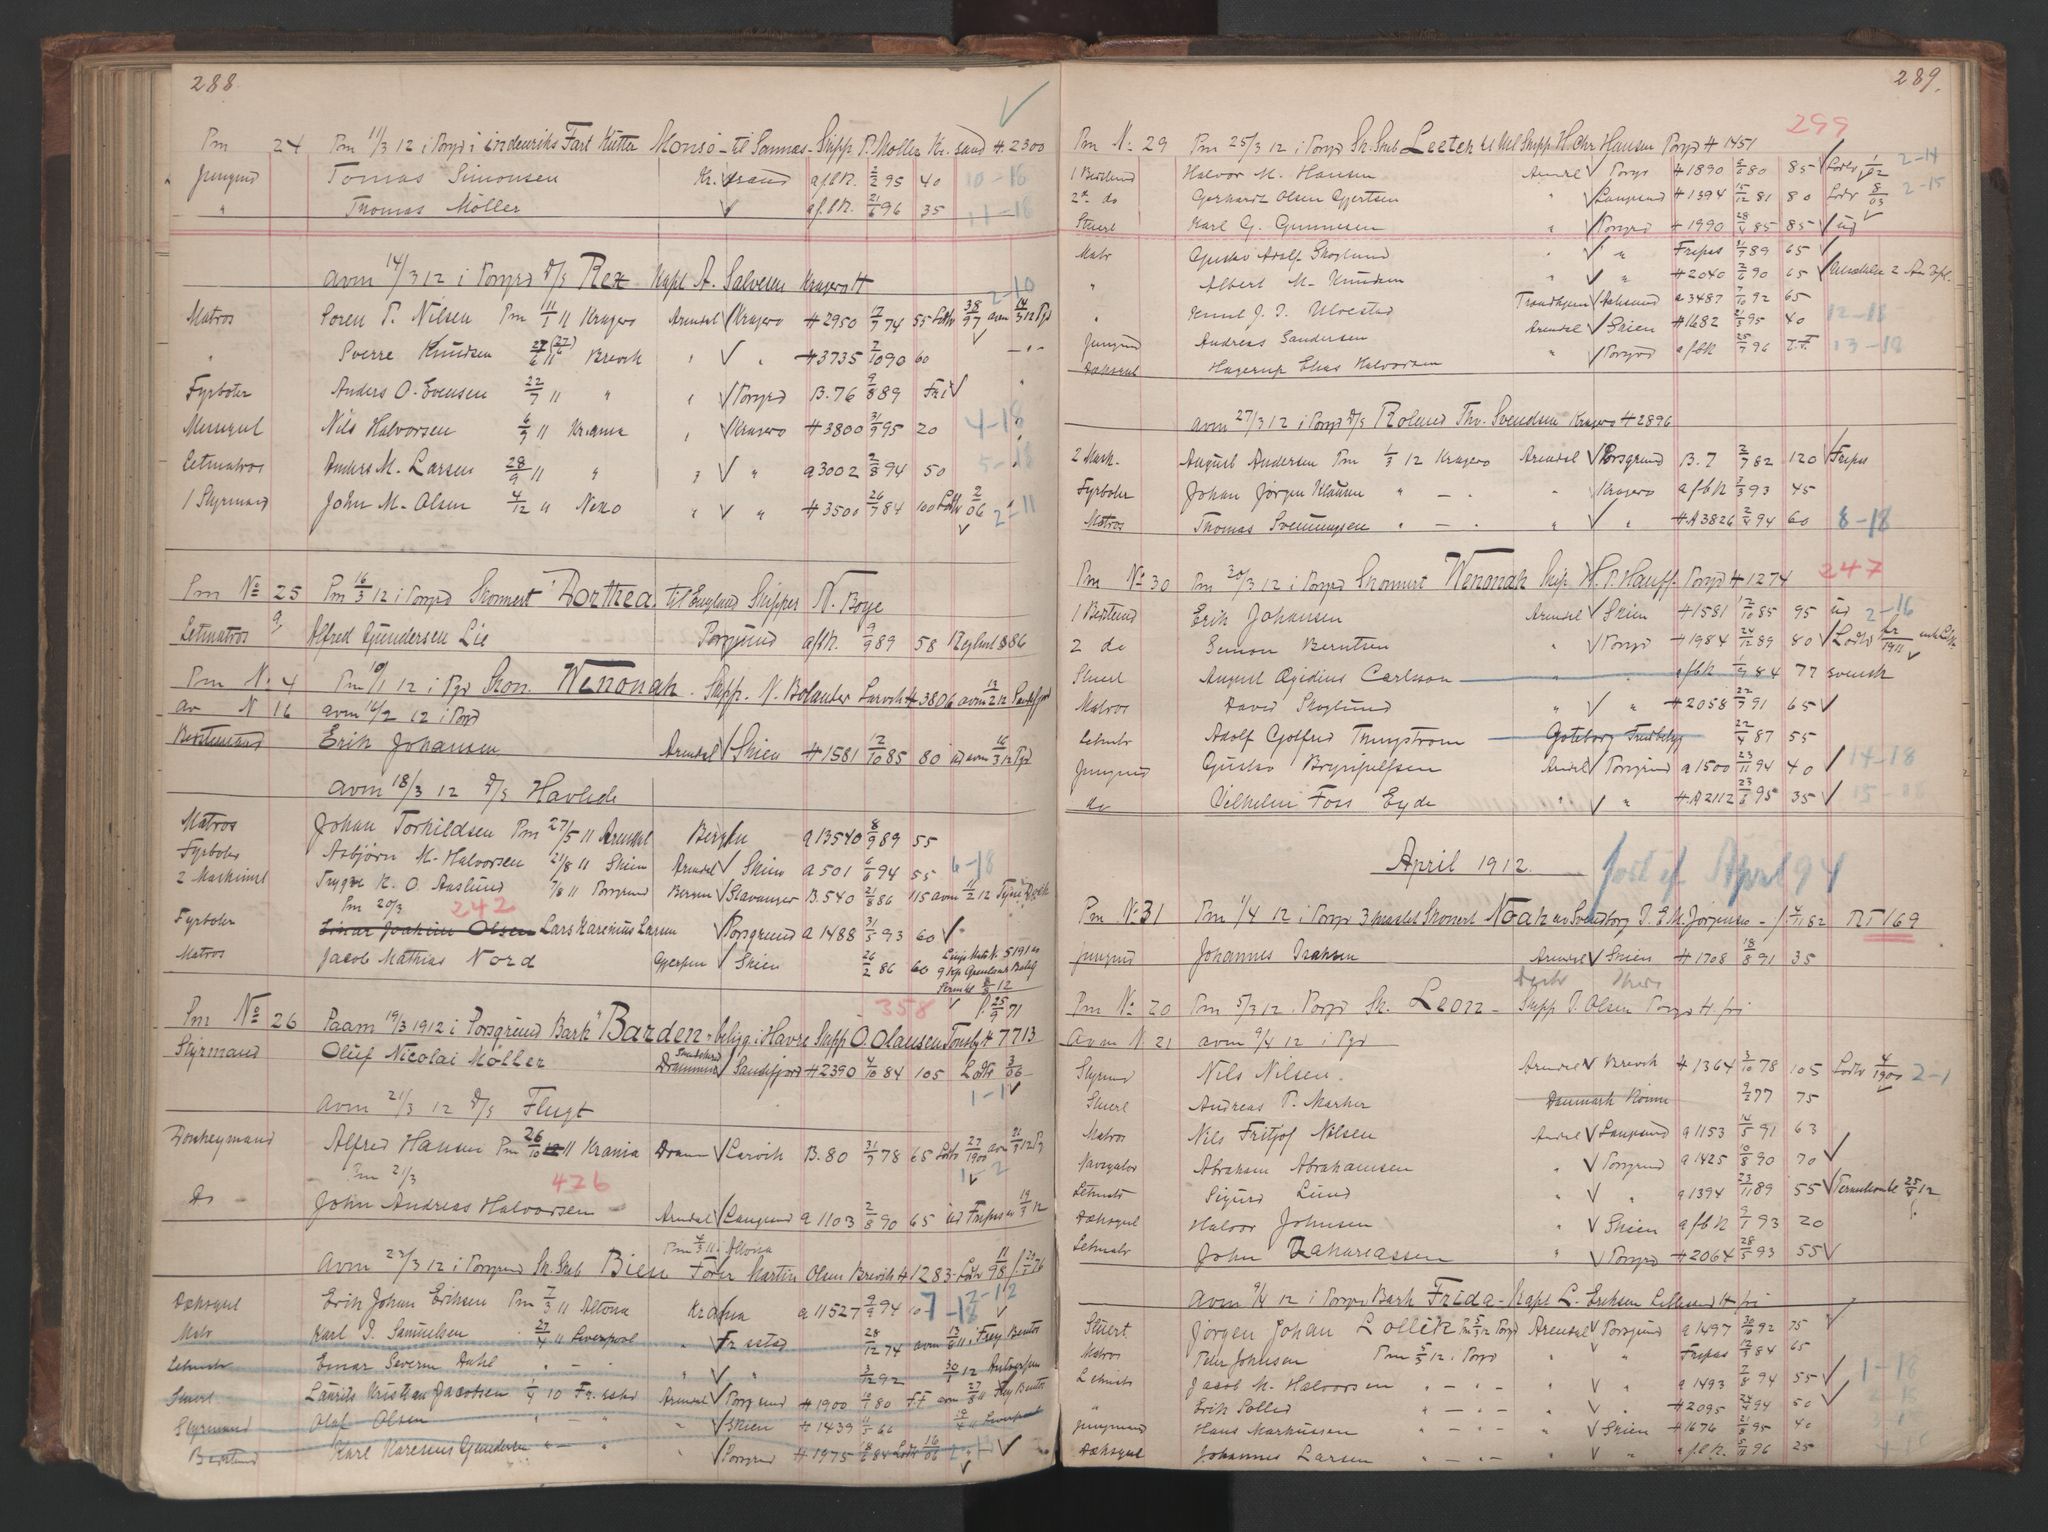 288.
Pm 24 Pm 11/3 12 i Porsgr i indenriks Fart Kutter Monsö - til Sannæs - Skipp. P. Moller Kr. sand H. 2300
Jungmd Tomas Simonsen Kr. sand afbk. 2/2 95 40 10-18
" Thomas Möller afbk. 21/6 96 35 11-18
avm 14/3 12 i Porsgrd D/S Rex Kapt A. Salvesen Kragerø H
2-10
Matros Soren P. Nilsen Pm 11/1 11 Kragero Arendal Kragero H 2950 17/7 74 55 Lodtr 38/97 avm 14/3 12 Pgd
" Sverre Knudsen 27/6 11 Brevik " " H 3735 2/10 90 60
Fyrboter Anders O. Evensen 22/7 11 " " Porsgrd B. 76 9/8 89 Fri
Messegut Nils Halvorsen 6/9 11 Krania " Kragero H 3800 31/7 95 20 4-18
Letmatros Anders M. Larsen 28/9 11 " " " a 3002 2/8 94 50 5-18
1 Styrmand John M. Olsen 4/12 11 Nexo " " H 3500 26/7 84 100 Lodtr 2/06 2-11
Pm No 25 Pm 16/3 12 i Porsgrd Skonnert "Dorthea" til England Skipper N. Boye
Letmatros Alfred Gundersen Lie Porsgrund afbk. 9/9 89 58
Pm N. 4 Pm 10/1 12 i Pgd Skon. Wenonah. Skipp. N. Bolander Larvik H 3806 avm 13/2 12 Sandefjord
av N 16 avm 16/2 12 i Pgd
Bestemand Erik Johansen Arendal Skien H 1581 12/10 85 80 ud avm 16/3 12 Pgd
avm 18/3 12 D/S Havlide
Matros Johan Torkildsen Pm 27/5 11 Arendal Bergen a 13540 8/9 89 55
Fyrboter Asbjörn M. Halvorsen 21/8 11 Skien Arendal Skien a 501 6/6 94 55 6-18
2 Maskinist Trygve K. O. Aaslund 7/8 11 Porsgrund Bergen Stavanger B. 540 21/8 86 115 avm 11/2 12
Pm 20/3 242
Fyrboter Einar Joakim Olsen Lars Karenius Larsen Porsgrund a 1488 31/5 93 60
Matros Jacob Mathias Nord Gjerpen Skien 26/2 86 60
358
Pm No 26 Paam 19/3 1912 i Porsgrund Bark "Barden" - belig. i Havre Skipp O. Olausen Tonsbg H 7713
Styrmand Oluf Nicolai Möller Drammen Sandefjord H 2390 4/10 84 105 Lodtr 3/06
avm 21/3 12 D/S Flugt 1-1
Donkeymand Alfred Hansen Pm 26/10 11 Krania Dramm Larvik B. 80 31/7 78 65 Lodtr 27/1900 avm 21/3 12 Pg
Pm 21/3 476 1-2
Do - John Andreas Halvorsen Arendal Langesund a 1103 2/8 90 65 ud Fripas 19/3 12
Pm 4/3 11 i Altona
avm 22/3 12 i Porsgrund Sk. Skib Bien Förer Martin Olsen Brevik H 1283 - Lodtr 11/98
2-12
Dæksgut Erik Johan Eriksen Pm 7/3 11 Altona Krania a 11527 9/9 94 10 7-18
Matr Karl I. Samuelsen 27/4 11 Liverpool " Fr.stad 28/12 74 avm 13/8 11 Frey Bentos
Letmatr Einar Severin Dahl " - " " 3/12 92 30/1 12
Stuert Laurits Kristian Jacobsen 1/4 10 Fr.stad Arendal Porsgrund H 1900 12/6 80 F.F avm 27/8 11 Frey Bentos
Styrmand Olaf Olsen " Skien H 1439 11/5 66 19/4 11 Liverpool
Bestmd Karl Karenius Gundersen " - " Porsgrd H 1975 8/6 84 Lodtr 16/06
289.
299
Pm No 29 Pm 25/3 12 i Porsgr Sk. Skib Leeter Skipp H. Chr Hansen Porsgr H 1451
1 Bestmd Halvor M. Hansen Arendal Porsgr H 1890 5/6 80 85 Lodtr 1/02 2-14
2n do Gerhardt Olsen Gjertsen " Langesund H 1394 15/12 81 80 Lodtr 8/03 2-15
Stuert Karl G. Gunnesen " Porsgrd H 1990 28/4 85 85 ud
Matr Gustav Adolf Skoglund " " Fripas 31/7 89 65
" Albert M. Knudsen " " H 2040 2/6 90 65
" Knut J. I. Ulvestad Trondhjem Aalesund a 3487 7/10 92 65
Jungmd Andreas Sandersen Arendal Skien H 1682 21/3 95 40 12-18
Dæksgut Hagerup Elias Halvorsen " Porsgrd afbk 25/7 96 13-18
avm 27/3 12 i Porsgrd D/S Roland Thv. Svendsen Kragero H 2896
2 Mask. August Andersen Pm 1/3 12 Kragero Arendal Porsgrund B. 7 2/7 82 120 Fripas
Fyrboter Johan Jörgen Klausen " - " " Kragero afbk 3/3 93 45
Matros Thomas Svenningsen " - " " " H A 3826 2/4 94 60 8-18
Pm No 30 Pm 30/3 12 i Porsgrd Skonnert Wenonah Skip. H. P. Hauff. Porsgrd H 1274 247
1 Bestmd Erik Johansen Arendal Skien H 1581 12/10 85 95 ud 2-16
2 do Simon Berntsen " Porsgrd H 1984 24/12 89 80 Lodtr
Stuert August Egidius Carlsson " afbk 1/9 84 77 svensk
Matros David Skoglund " " H 2058 22/7 91 65
Letmatr Adolf Gotfred Tengstrom Goteborg 22/4 87 55
Jungmd Gustav Brynjulfsen Arendal Porsgrund a 1500 23/11 94 40 14-18
do Vilhelm Foss Eyde " " H A 2112 23/6 95 35 15-18
April 1912. født ef. April 94
Pm No 31 Pm 1/4 12 i Porsgr 3 mastet Skonnert Noah av Svendborg I. E. M. Jörgensen - RT 169
Jungmd Johannes Isaksen Arendal Skien H 1708 18/8 91 35
Pm No 20 Pm 5/3 12 i Porsgr Sk. Leon - Skipp I. Olsen Porsgr H. fri
Avm N. 21 avm 9/4 12 i Pgd
Styrmd Nils Nilsen. Arendal Brevik H 1364 3/10 78 105 Lodtr 4/1900 2-1
Stuert Andreas P. Marker Danmark 2/2 77 75
Matros Nils Fritjof Nilsen Arendal Langesund a 1153 14/5 91 63
Navigatör Abraham Abrahamsen " Porsgrund a 1425 10/8 90 70
Letmatr Sigurd Lund " " a 1394 23/11 89 55 25/4 12
Dæksgut Halvor Johnsen " Skien afbk 9/1 93 20
Letmatr John Zakariassen " Porsgrd H 2064 28/5 93 55
avm 9/4 12 i Porsgr Bark Frida - Kapt L. Eriksen Lillesand H fri
Stuert. Jörgen Johan Lolleik Pm 5/3 12 Porsgd Arendal Porsgrund a 1497 30/10 92 75
Matros Peter Johnsen Pm 5/3 12 i Porsgrd " " Fripas 12/3 84 65
Letmatr Jacob M. Halvorsen " - " - " " " a 1493 7/8 94 55 1-18
" Erik Solli " - " - " " " H 2095 24/4 94 50
Jungmand Hans Markussen " - " - " " Skien H 1676 21/8 95 40
Dæksgut Johannes Larsen " - " - " " " afbk. 5/11 96 25